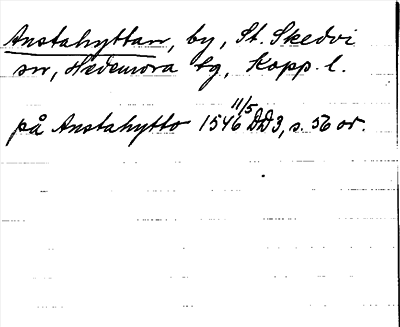 Anstahyttan, by, St. Skedvi
sn, Hedemora tg, Kopp. l.
på Anstahytto 1546 11/5 DD3, s. 56 or.